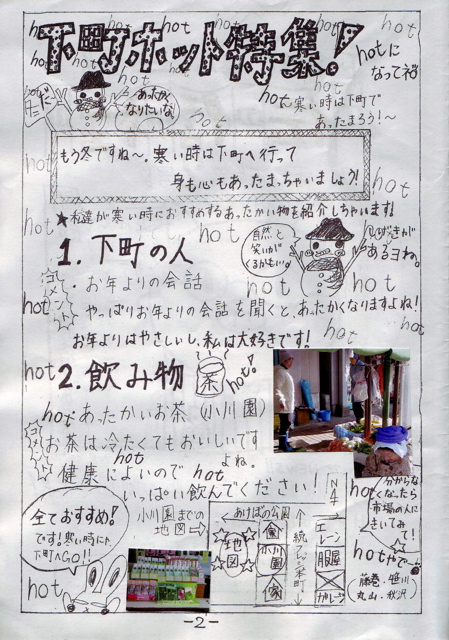 下町ホット特集!
hot
hotに
なってネ
あったかく
なりたいな
hotに寒い時は下町で
あったまろう!~
もう冬ですね~。寒い時は下町へ行って
身も心もあったまっちゃいましょう!
★私達が寒い時におすすめするあったかい物を紹介しちゃいます!
自然と
笑いが
くるかもい。
1. 下町の人
・お年よりの会話
コメント
やっぱりお年よりの会話を聞くと、あったかくなりますよね!
お年よりはやさしいし、私は大好きです!
hot
2. 飲み物
茶
hot!
hotあったかいお茶(小川園)
コメント
お茶は冷たくてもおいしいです
よね。
健康によいので
hot
いっぱい飲んでください!
全ておすすめ!
です!寒い時に
下町へGO!!
小川園までの
地図
N4
←あけぼの公園
☆地図☆
小川園
家
エレーン
服屋
ガレージ
hot分からなくなったら
市場の人に
きいてみて!
hotやで
(藤巻・笹川
丸山・秋沢)
hot
-2-